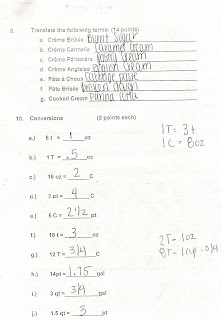 9. Translate the following terms: (14 points)
a. Crème Brûlée Burnt Sugar
b. Crème Carmella Caramel Cream
c. Crème Pâtissière Pastry Cream
d. Crème Anglaise English Cream
e. Pâte à Choux Cabbage paste
f. Pâte Brisée broken dough
g. Cooked Cream panna cotta
10. Conversions (2 points each)
1T = 3t
1C = 8oz
a.) 6 t = 1 oz
b.) 1 T = .5 oz
c.) 16 oz = 2 C
d.) 2 pt = 4 C
e.) 5 C = 2 1/2 pt
f.) 18 t = 3 oz
2T = 1oz
g.) 12 T = 3/4 C
h.) 14pt = 1.75 gal
i.) 3 qt = 3/4 gal
j.) 1.5 qt = 3 pt